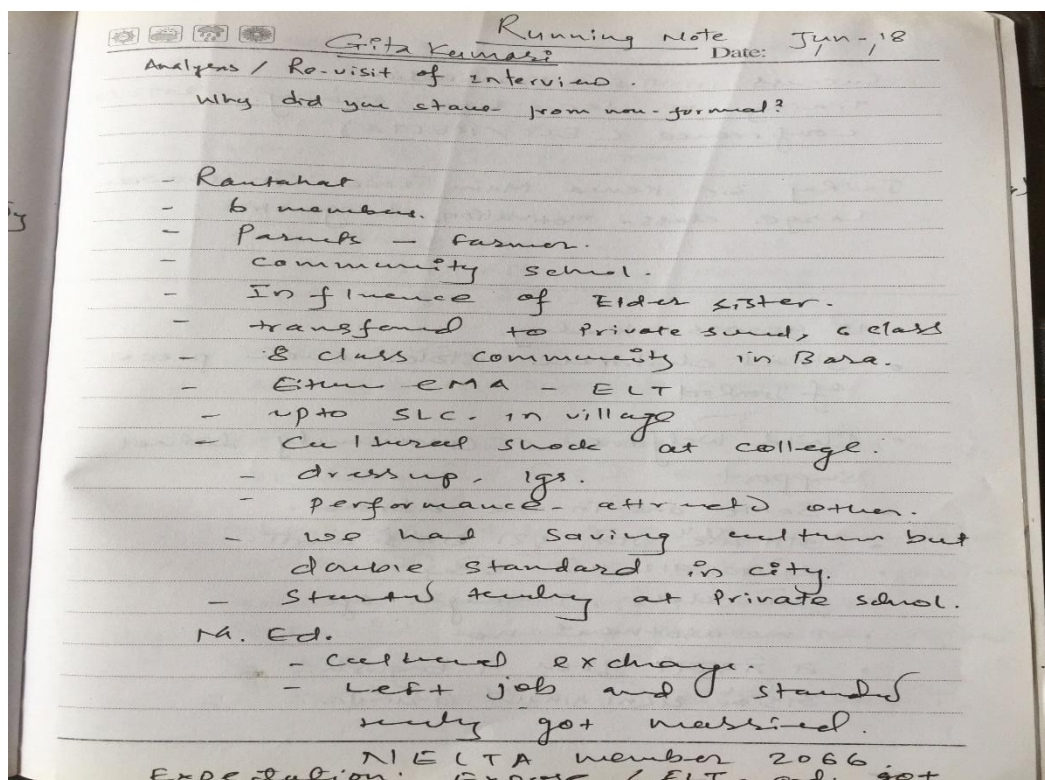 Running Note
Gita Kumari Date: Jun-18
Analysis / Re-visit of interview.
Why did you from non-formal?
- Rautahat
- 6 members.
- Parents - farmer.
- community school.
- Influence of Elder sister.
- to Private 6 class
- 8 class community in Bara.
- EMA - ELT
- upto SLC. in village
- Cultural shock at college.
- dress up, lgs.
- performance - other.
- we had Saving culture but
double standard in city.
- Started at Private school.
M. Ed.
- cultural exchange.
- Left job and
got married.
NELTA member 2066.
Expectation. / ELT got